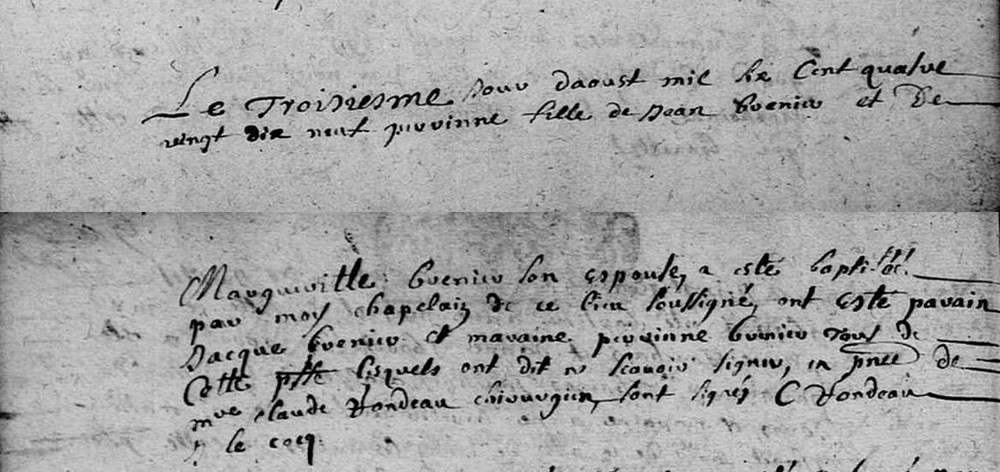 Le Troisiesme Jour daoust mil six Cent quatre
vingt dix neuf perrinne fille de Jean Grenier et De
Margueritte Grenier son espouse, a esté baptisée
par moy chapelain de ce lieu soussigné, ont esté parain
Jacque Grenier et maraine perrinne Grenier tous de
Cette psse lesquels ont dit ne scavoir signer, en pnce de
mre claude Rondeau chirurgien, sont signés C Rondeau
le cocq